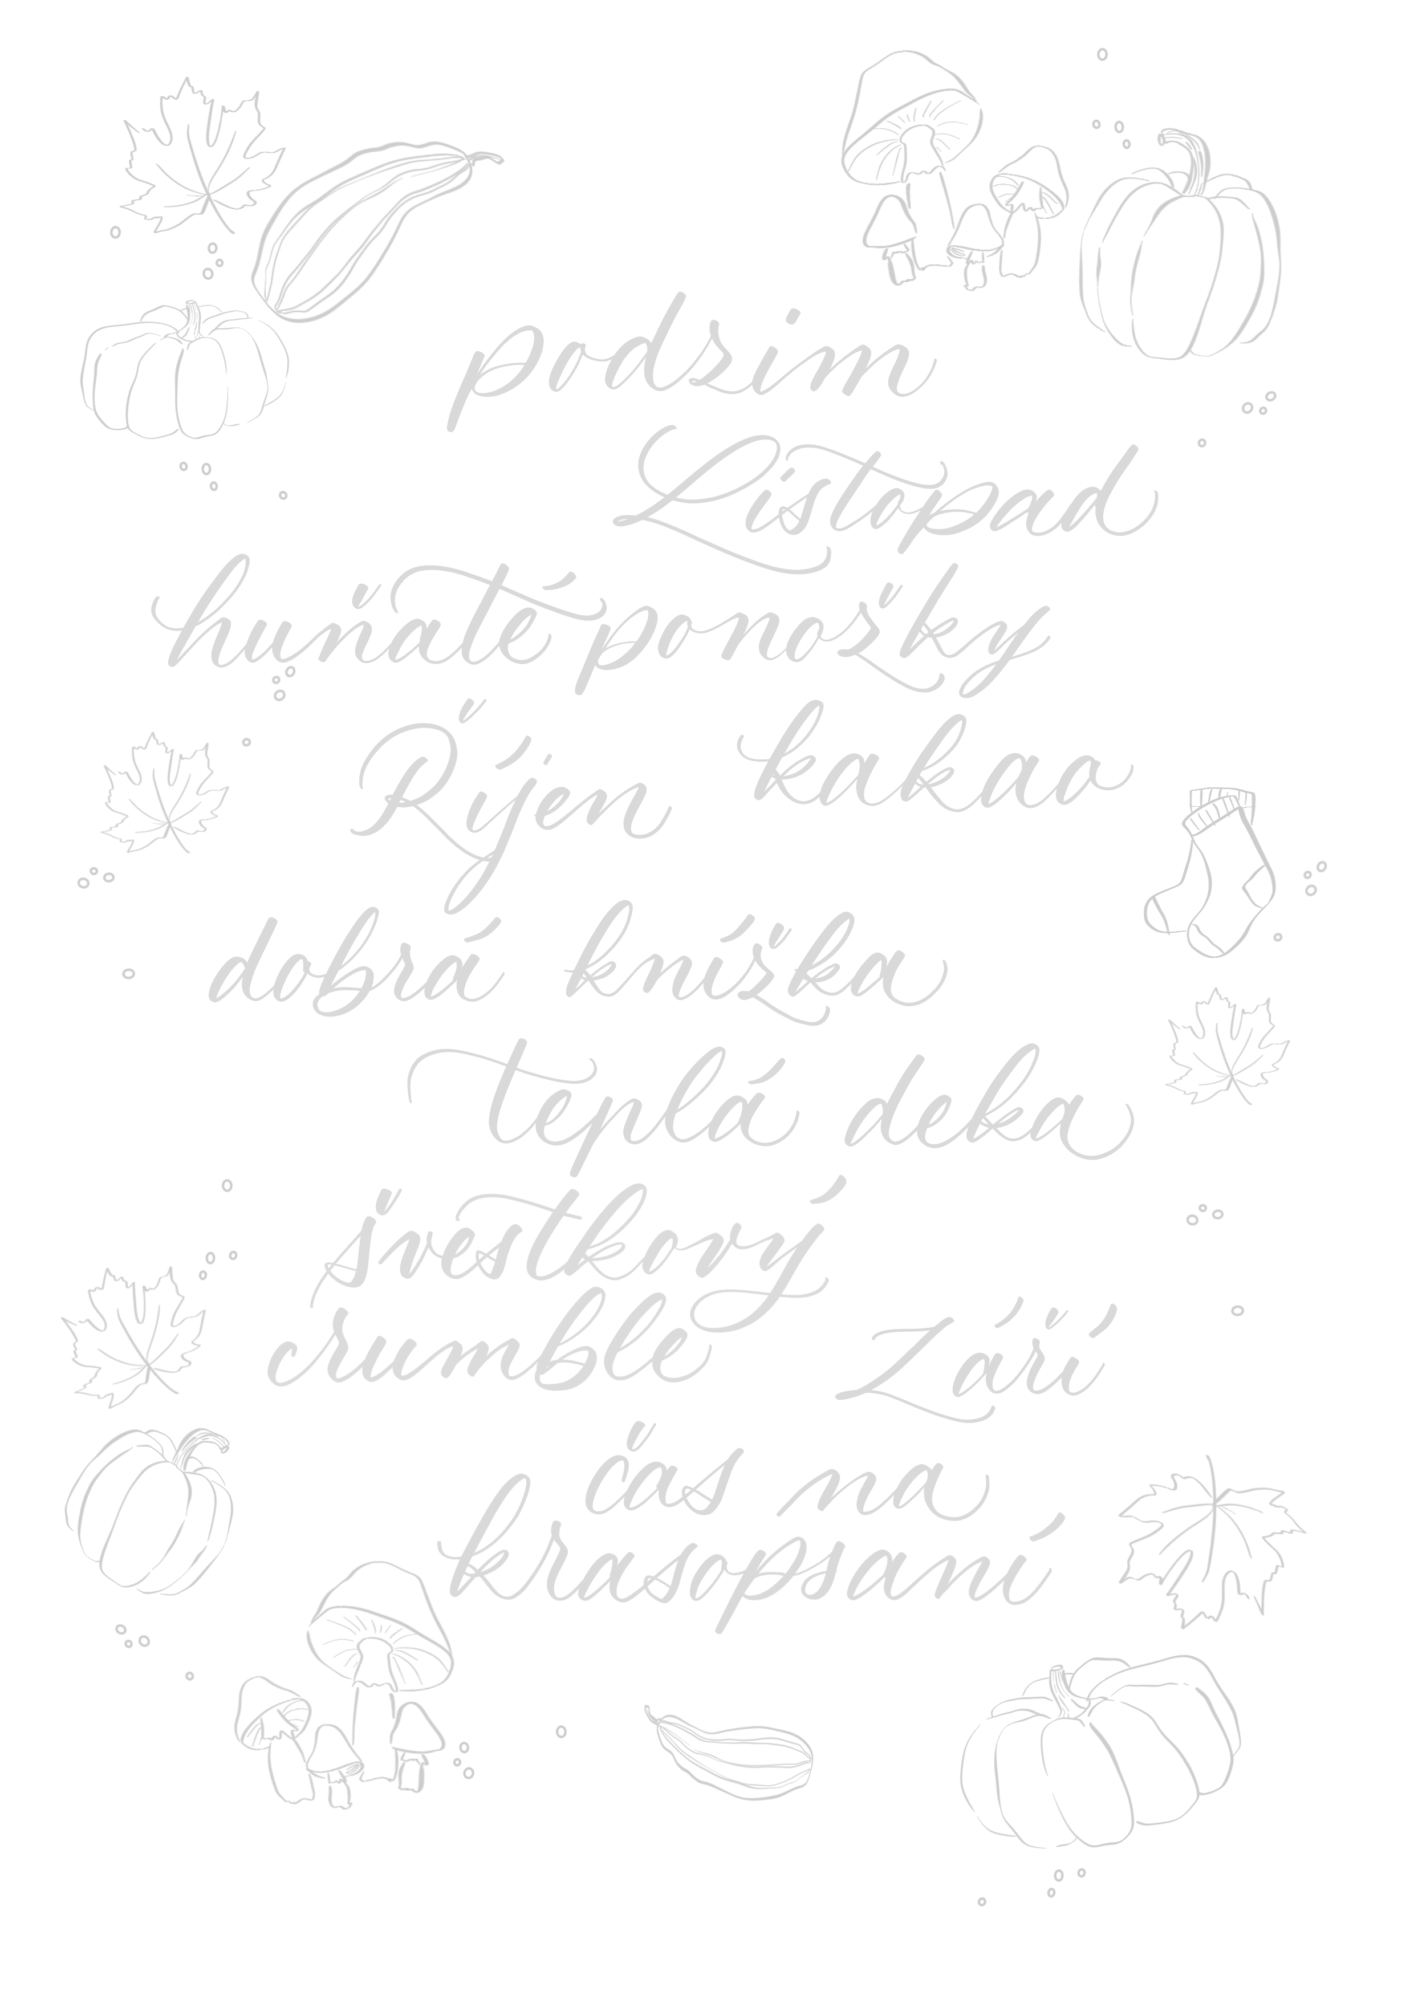 podzim
Listopad
huňaté ponožky
Říjen kakao
dobrá knížka
teplá deka
švestkový
crumble Září
čas na
krasopsaní